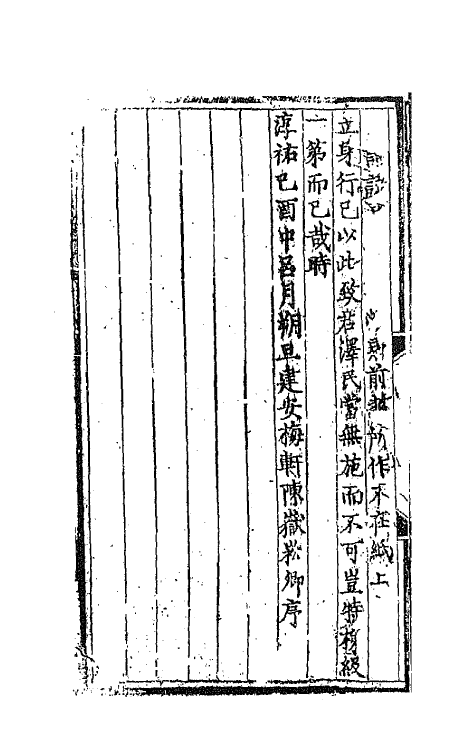 則前輩所作不在紙上
立身行己以此致君澤民當無施而不可豈特移級
一第而已哉時
淳祐己酉中呂月朔旦建安梅軒陳嶽崧卿序